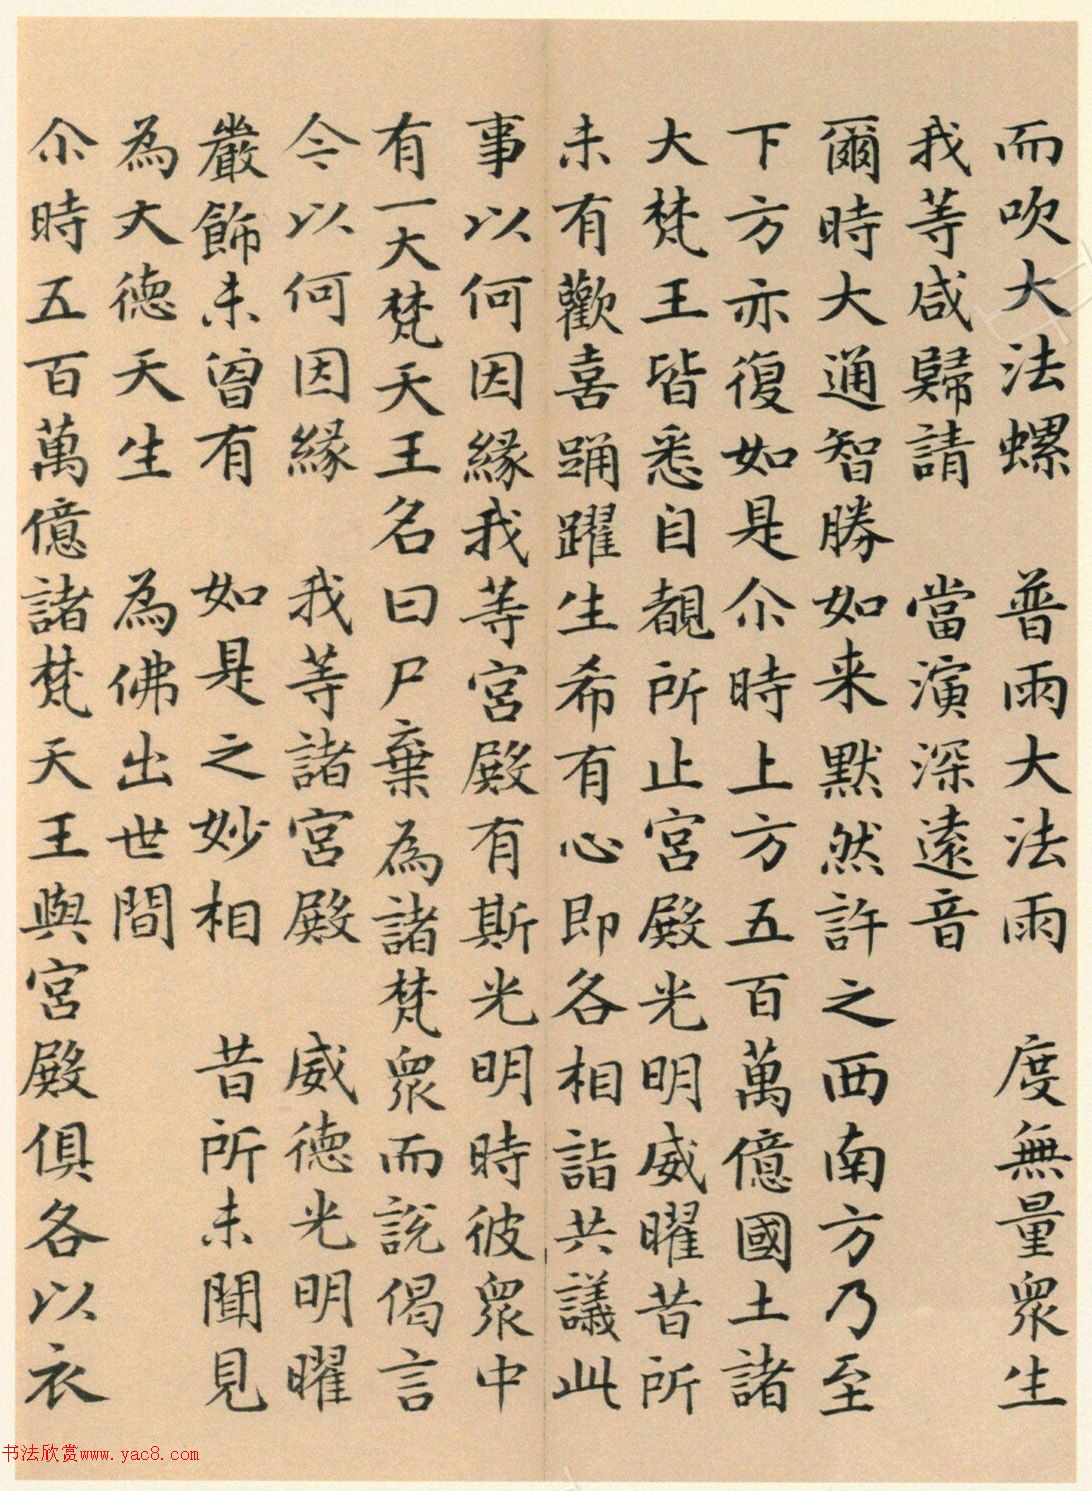 而吹大法螺　普雨大法雨　度無量衆生
我等咸歸請　當演深遠音
爾時大通智勝如来默然許之西南方乃至
下方亦復如是尒時上方五百萬億國土諸
大梵王皆悉自覩所止宮殿光明威曜昔所
未有歡喜踊躍生希有心即各相詣共議此
事以何因緣我等宮殿有斯光明時彼衆中
有一大梵天王名曰尸棄為諸梵衆而說偈言
今以何因緣　我等諸宮殿　威德光明曜
嚴飾未曾有　如是之妙相　昔所未聞見
為大德天生　為佛出世間
尒時五百萬億諸梵天王與宮殿俱各以衣
书法欣赏www.yac8.com